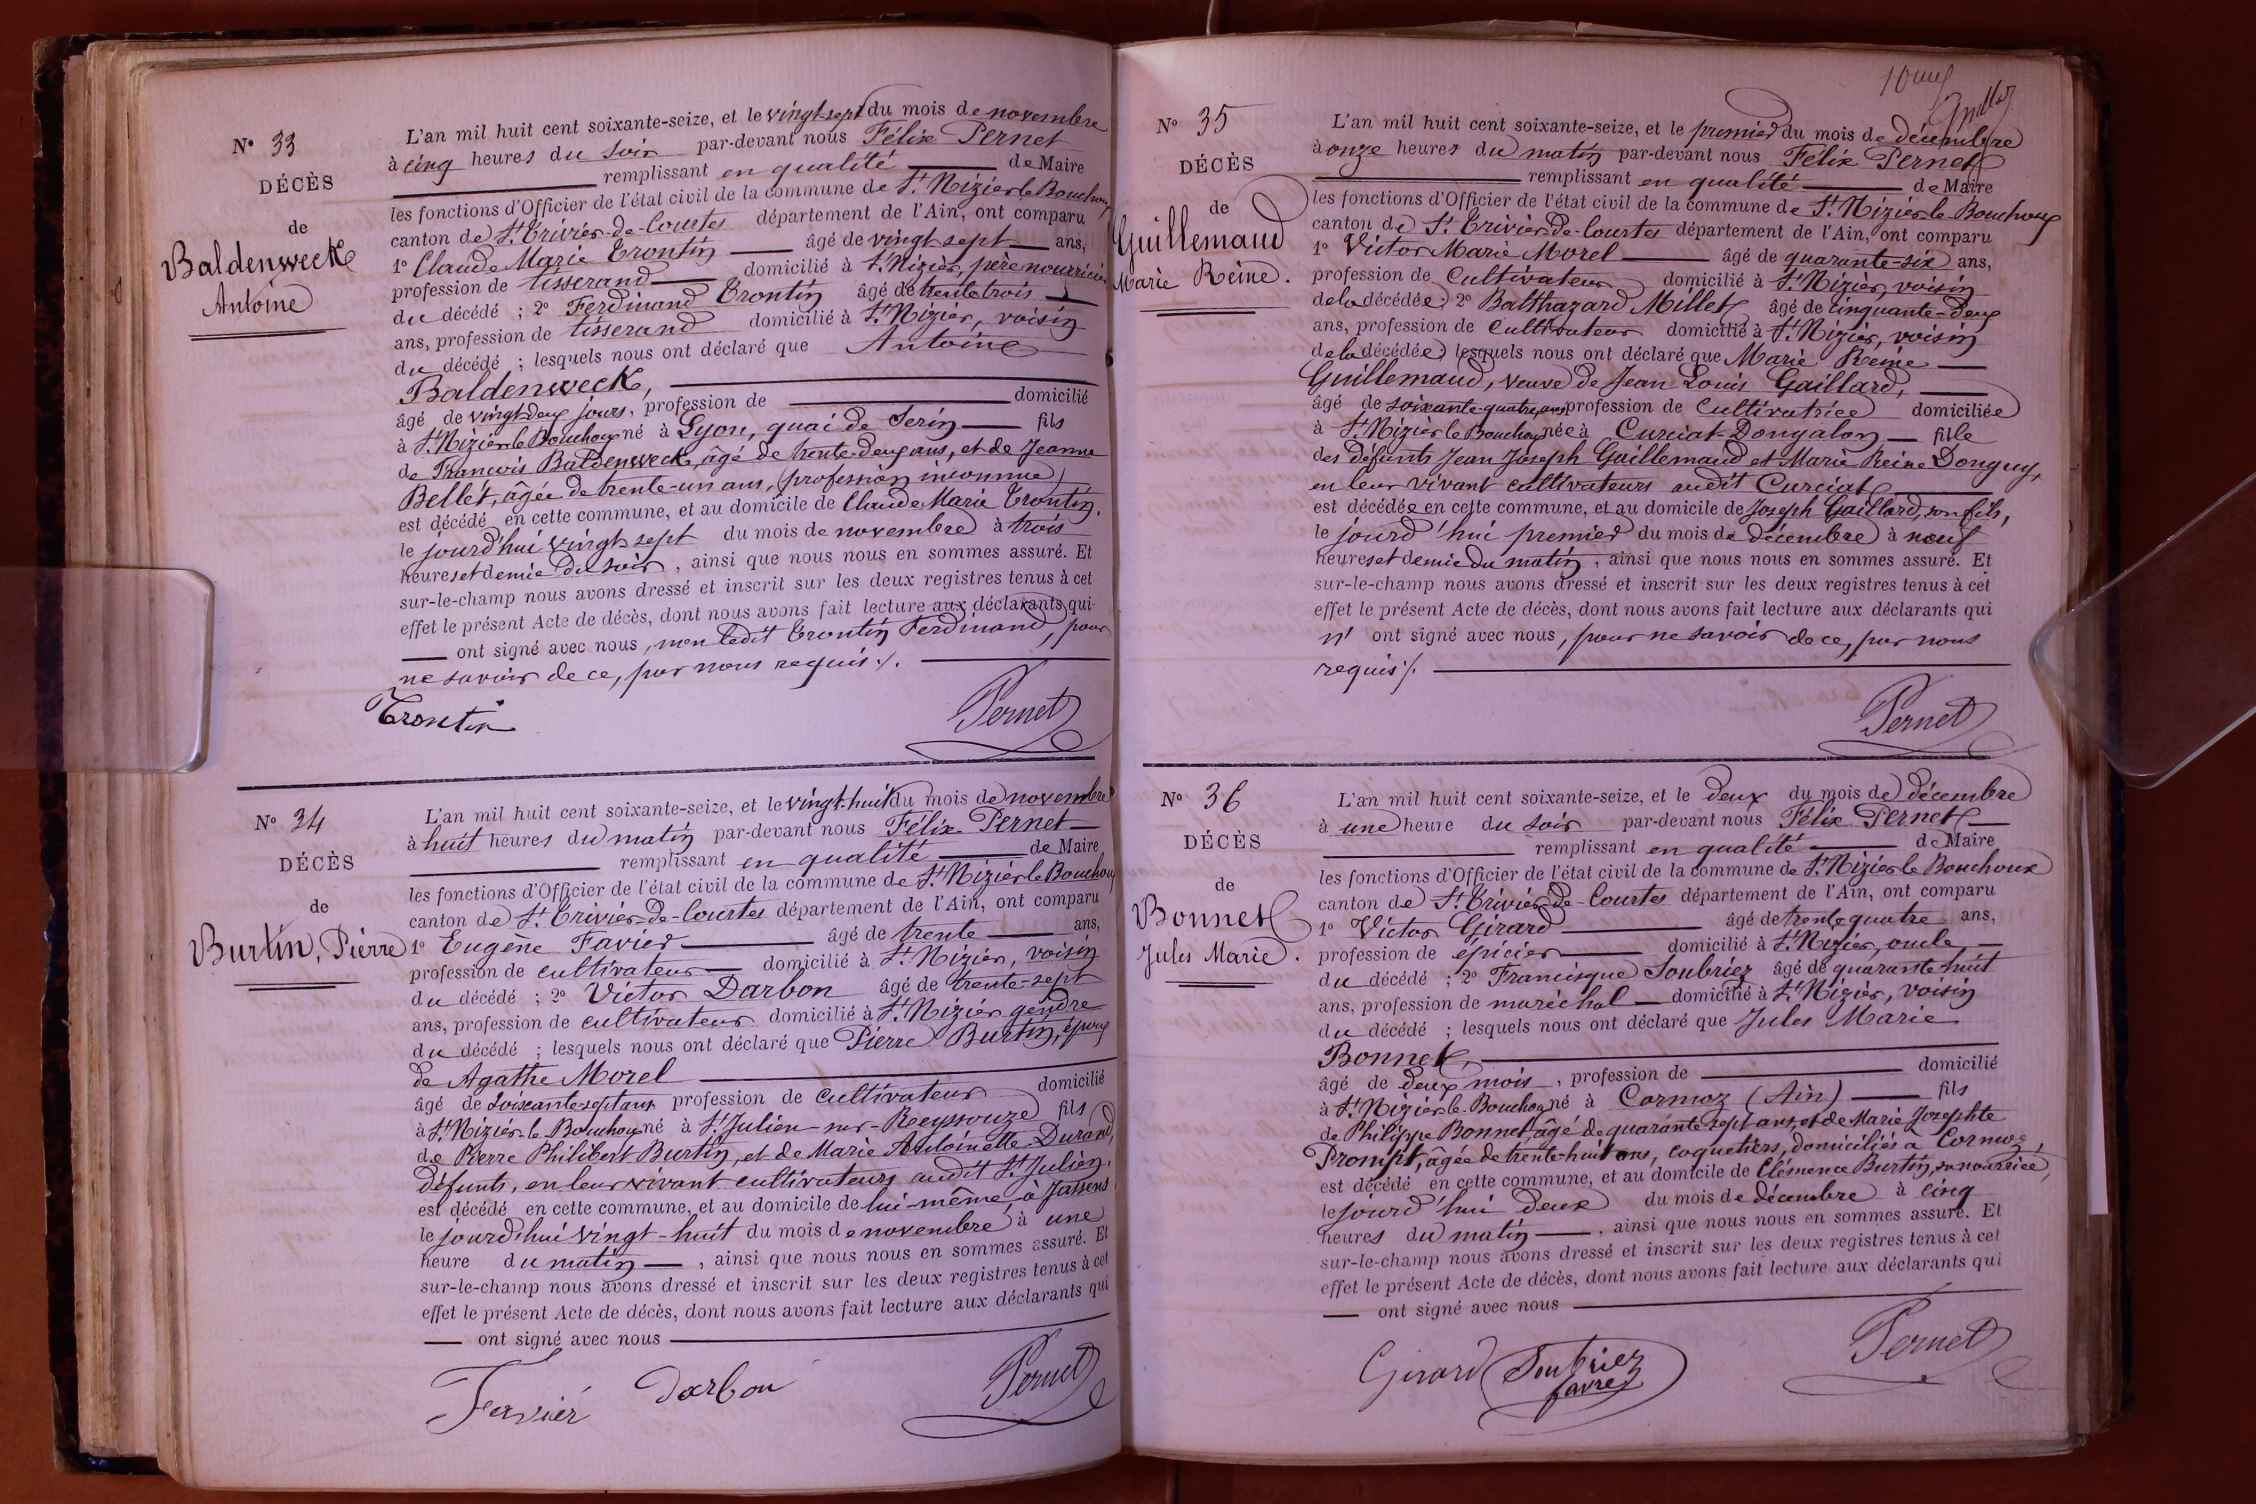 N° 33
DÉCÈS
de
Baldenweck
Antoine
L'an mil huit cent soixante-seize, et le vingt-sept du mois de novembre
à cinq heures du soir par-devant nous Félix Pernet
remplissant en qualité de Maire
les fonctions d'Officier de l'état civil de la commune de St Nizier le Bouchoux
canton de St Trivier-de-Courtes département de l'Ain, ont comparu
1° Claude Marie Trontin âgé de vingt sept ans,
profession de tisserand domicilié à St Nizier, père nourricier
du décédé ; 2° Ferdinand Trontin âgé de trente trois
ans, profession de tisserand domicilié à St Nizier, voisin
du décédé ; lesquels nous ont déclaré que Antoine
Baldenweck,
âgé de vingt-deux jours, profession de domicilié
à St Nizier le Bouchoux né à Lyon, quai de Serin fils
de François Baldenweck, âgé de trente-deux ans, et de Jeanne
Bellet, âgée de trente-un ans, (profession inconnue)
est décédé en cette commune, et au domicile de Claude Marie Trontin,
le jourd'hui vingt sept du mois de novembre à trois
heures et demie du soir, ainsi que nous nous en sommes assuré. Et
sur-le-champ nous avons dressé et inscrit sur les deux registres tenus à cet
effet le présent Acte de décès, dont nous avons fait lecture aux déclarants qui
ont signé avec nous, non ledit Trontin Ferdinand, pour
ne savoir de ce, par nous requis ./.
Trontin Pernet
N° 34
DÉCÈS
de
Burtin, Pierre
L'an mil huit cent soixante-seize, et le vingt-huit du mois de novembre
à huit heures du matin par-devant nous Félix Pernet
remplissant en qualité de Maire
les fonctions d'Officier de l'état civil de la commune de St Nizier le Bouchoux
canton de St Trivier-de-Courtes département de l'Ain, ont comparu
1° Eugène Favier âgé de trente ans,
profession de cultivateur domicilié à St Nizier, voisin
du décédé ; 2° Victor Darbon âgé de trente-sept
ans, profession de cultivateur domicilié à St Nizier gendre
du décédé ; lesquels nous ont déclaré que Pierre Burtin, époux
de Agathe Morel
âgé de soixante-sept ans profession de cultivateur domicilié
à St Nizier le Bouchoux né à St Julien-sur-Reyssouze fils
de Pierre Philibert Burtin, et de Marie Antoinette Durand,
défunts, en leur vivant cultivateurs audit St Julien,
est décédé en cette commune, et au domicile de lui-même, à Jassens
le jourd'hui vingt-huit du mois de novembre à une
heure du matin, ainsi que nous nous en sommes assuré. Et
sur-le-champ nous avons dressé et inscrit sur les deux registres tenus à cet
effet le présent Acte de décès, dont nous avons fait lecture aux déclarants qui
ont signé avec nous
Favier Darbon Pernet
N° 35
DÉCÈS
de
Guillemaud
Marie Reine.
L'an mil huit cent soixante-seize, et le premier du mois de décembre
à onze heures du matin par-devant nous Félix Pernet
remplissant en qualité de Maire
les fonctions d'Officier de l'état civil de la commune de St Nizier-le-Bouchoux
canton de St Trivier-de-Courtes département de l'Ain, ont comparu
1° Victor Marie Morel âgé de quarante-six ans,
profession de Cultivateur domicilié à St Nizier, voisin
de la décédée 2° Balthazard Millet âgé de cinquante-deux
ans, profession de cultivateur domicilié à St Nizier, voisin
de la décédée lesquels nous ont déclaré que Marie Reine
Guillemaud, veuve de Jean Louis Gaillard,
âgé de soixante-quatre ans profession de cultivatrice domiciliée
à St Nizier le Bouchoux née à Curciat-Dongalon fille
des défunts Jean Joseph Guillemaud et Marie Reine Donguy,
en leur vivant cultivateurs audit Curciat
est décédée en cette commune, et au domicile de Joseph Gaillard, son fils,
le jourd'hui premier du mois de décembre à neuf
heures et demie du matin, ainsi que nous nous en sommes assuré. Et
sur-le-champ nous avons dressé et inscrit sur les deux registres tenus à cet
effet le présent Acte de décès, dont nous avons fait lecture aux déclarants qui
n' ont signé avec nous, pour ne savoir de ce, par nous
requis ./.
Pernet
N° 36
DÉCÈS
de
Bonnet
Jules Marie.
L'an mil huit cent soixante-seize, et le deux du mois de décembre
à une heure du soir par-devant nous Félix Pernet
remplissant en qualité de Maire
les fonctions d'Officier de l'état civil de la commune de St Nizier le Bouchoux
canton de St Trivier-de-Courtes département de l'Ain, ont comparu
1° Victor Girard âgé de trente quatre ans,
profession de épicier domicilié à St Nizier, oncle
du décédé ; 2° Francisque Soubriez âgé de quarante-huit
ans, profession de maréchal domicilié à St Nizier, voisin
du décédé ; lesquels nous ont déclaré que Jules Marie
Bonnet,
âgé de deux mois, profession de domicilié
à St Nizier-le-Bouchoux né à Cormoz (Ain) fils
de Philippe Bonnet, âgé de quarante-sept ans, et de Marie Josephte
Prompt, âgée de trente-huit ans, coquetiers, domiciliés à Cormoz,
est décédé en cette commune, et au domicile de Clémence Burtin, sa nourrice,
le jourd'hui deux du mois de décembre à cinq
heures du matin, ainsi que nous nous en sommes assuré. Et
sur-le-champ nous avons dressé et inscrit sur les deux registres tenus à cet
effet le présent Acte de décès, dont nous avons fait lecture aux déclarants qui
ont signé avec nous
Girard Soubriez Pernet
favre